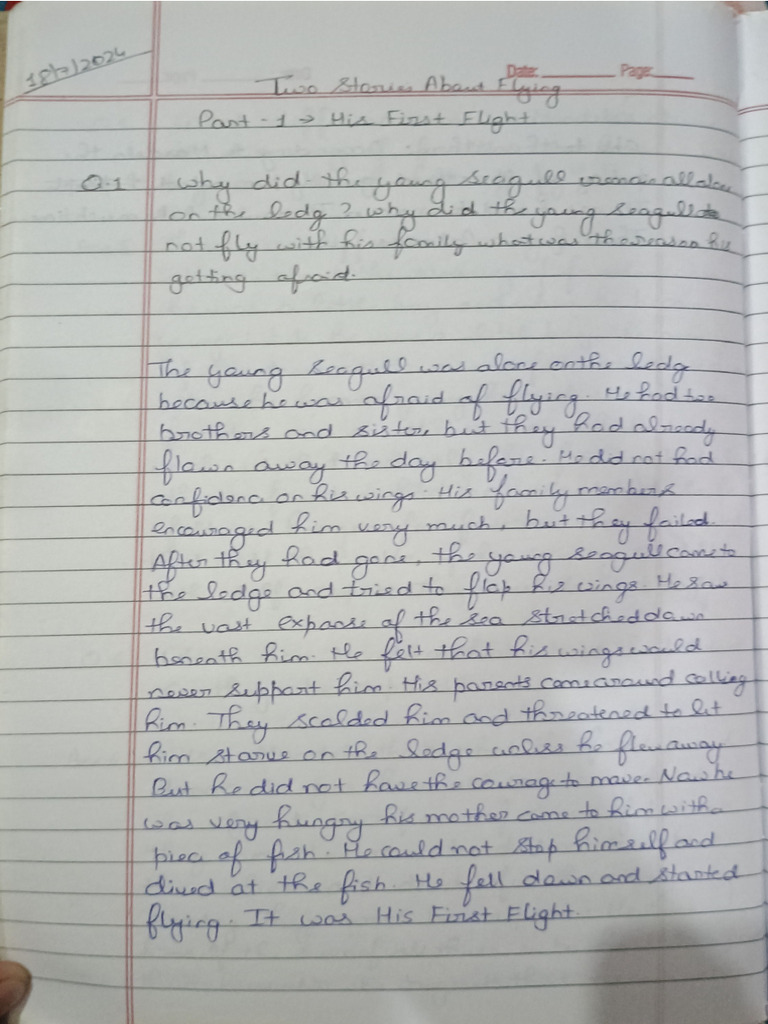 18/7/2024
Date: Page:
Two Stories About Flying
Part - 1 → His First Flight
Q.1 Why did the young seagull remain all alone
on the ledg? Why did the young seagull
not fly with his family what was the reason his
getting afraid.
The young seagull was alone on the ledg
because he was afraid of flying. He had two
brothers and sister, but they had already
flown away the day before. He did not had
confidenc on his wings. His family members
encouraged him very much, but they failed.
After they had gone, the young seagull came to
the ledge and tried to flap his wings. He saw
the vast expanse of the sea stretched down
beneath him. He felt that his wings would
never support him. His parents came around calling
him. They scolded him and threatened to let
him starve on the ledge unless he flew away
But he did not have the courage to move. Now he
was very hungry his mother came to him with a
piec of fish. He could not stop himself and
dived at the fish. He fell down and started
flying. It was His First Flight.